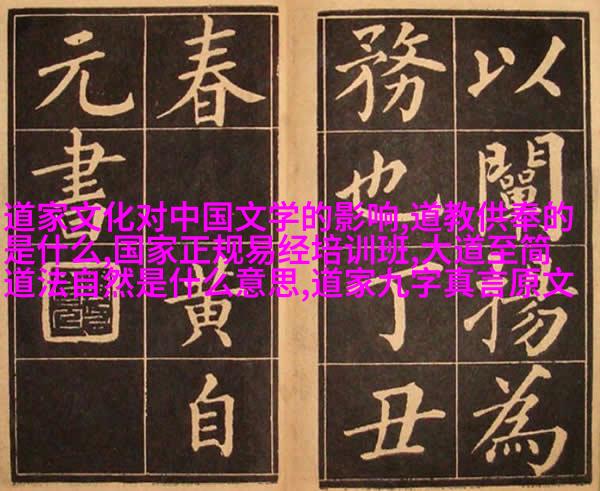 以闡揚為
務也丁丑
春黄自
元書
道家文化对中国文学的影响,道教供奉的
是什么,国家正规易经培训班,大道至简
道法自然是什么意思,道家九字真言原文